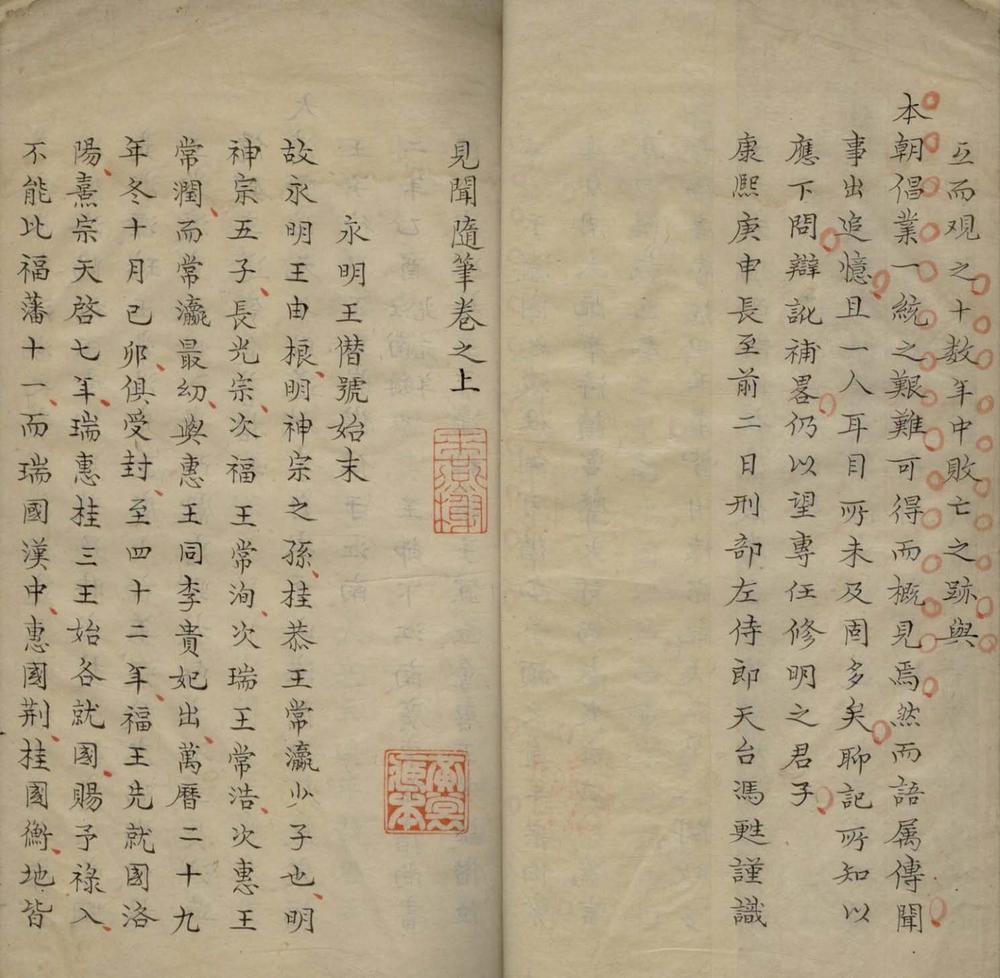 互而观之十数年中敗亡之跡與
本朝倡業一統之艱難可得而概見焉然而語属傳聞
事出追憶且一人耳目所未及固多矣聊記所知以
應下問辯訛補畧仍以望專任修明之君子
康熙庚申長至前二日刑部左侍郎天台馮甦謹識
見聞隨筆卷之上
永明王僣號始末
故永明王由榔明神宗之孫桂恭王常瀛少子也明
神宗五子長光宗次福王常洵次瑞王常浩次惠王
常潤而常瀛最幼與惠王同李貴妃出萬曆二十九
年冬十月已卯俱受封至四十二年福王先就國洛
陽熹宗天啓七年瑞惠桂三王始各就國賜予祿入
不能比福藩十一而瑞國漢中惠國荆桂國衡地皆